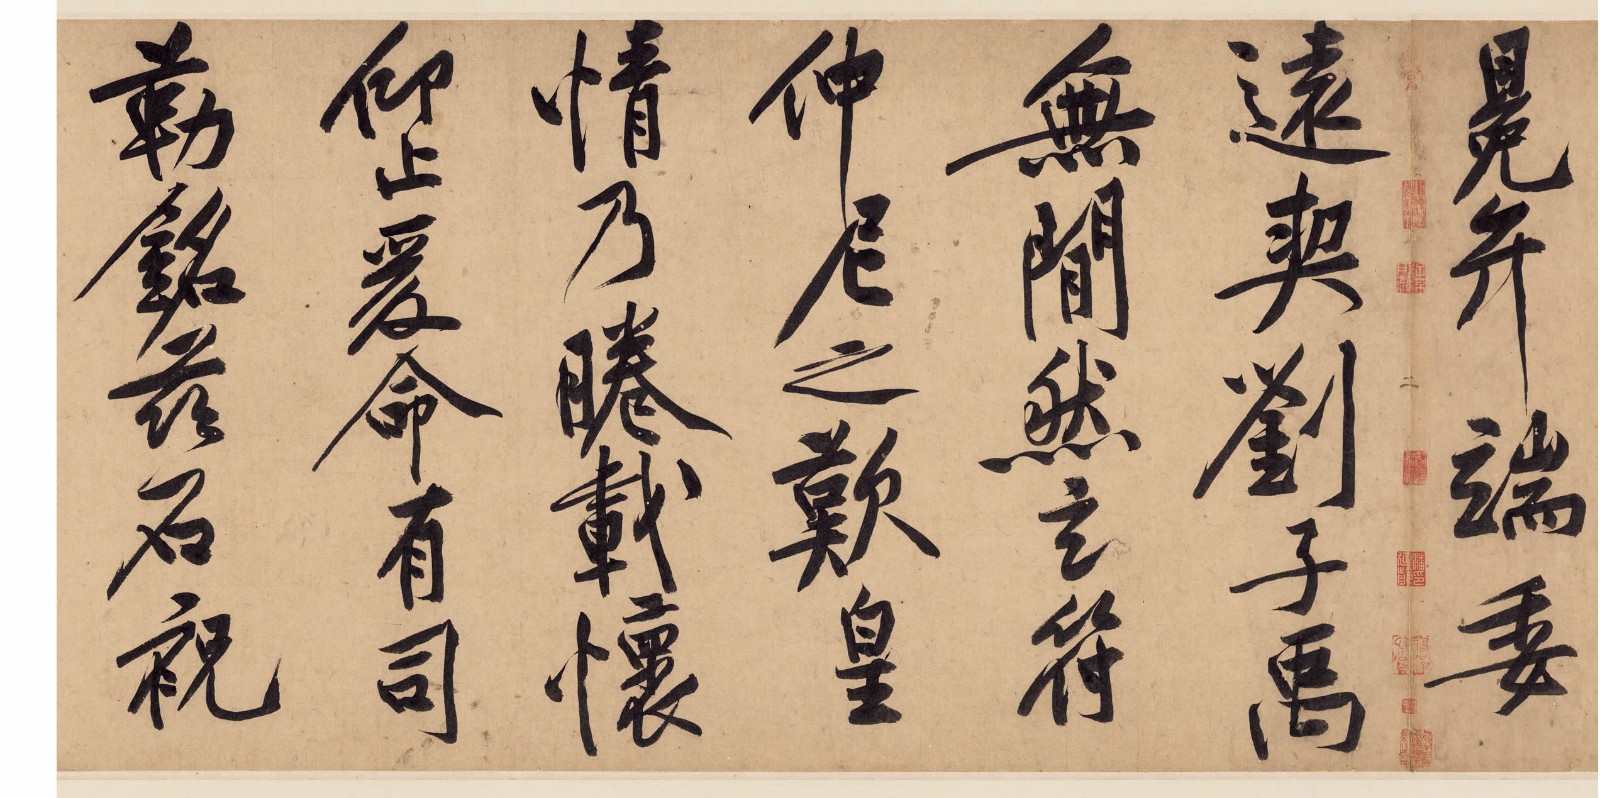 冕弁端委
遠契劉子禹
無閒然玄符
仲尼之歎皇
情乃睠載懷
仰止爰命有司
勒銘茲石祝